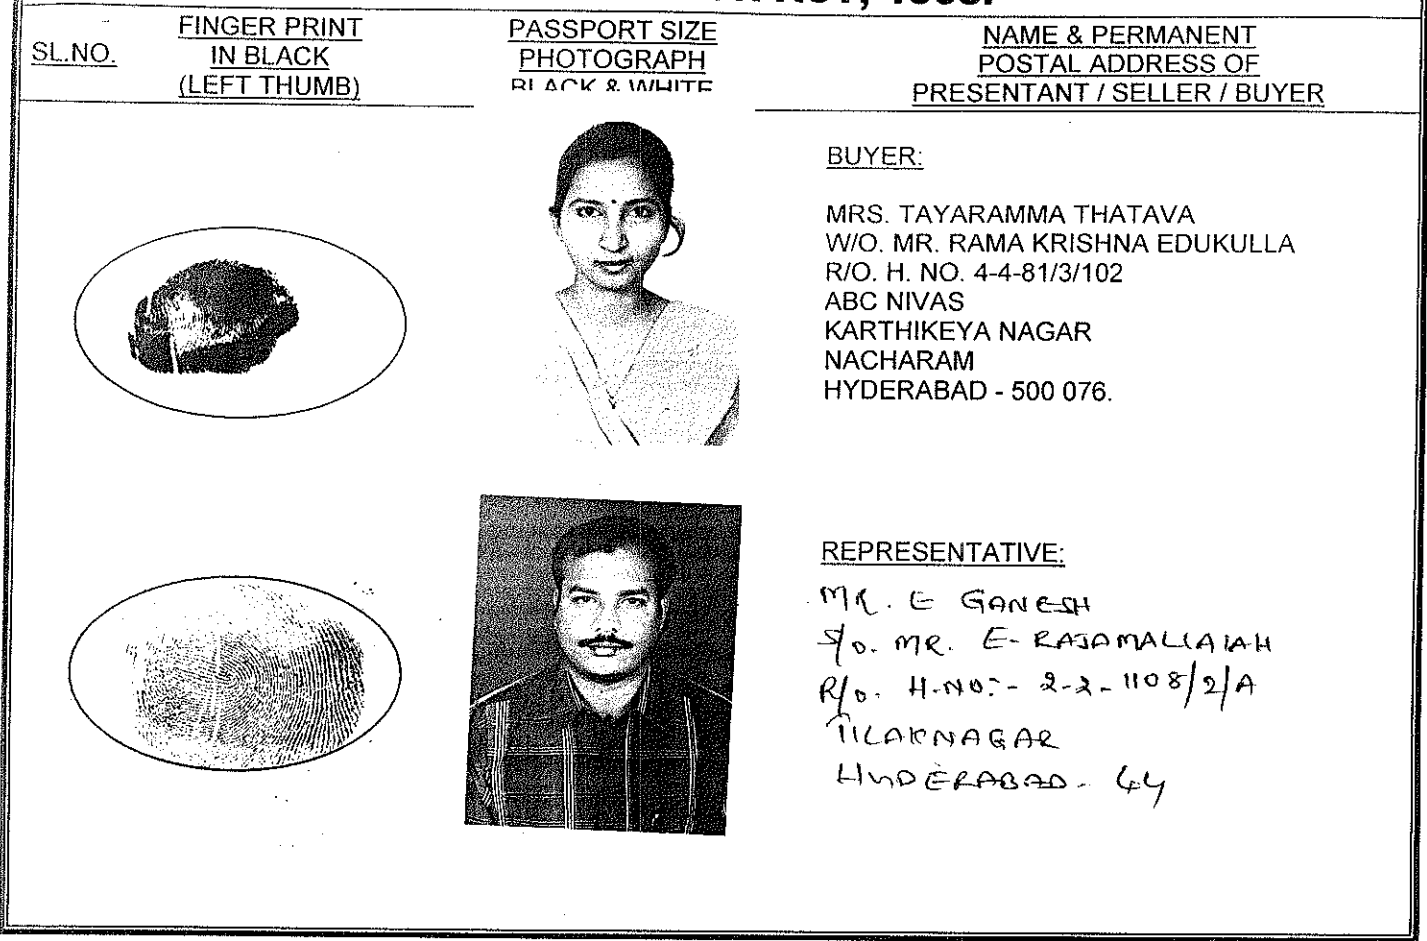 SL.NO.
FINGER PRINT
IN BLACK
(LEFT THUMB)
PASSPORT SIZE
PHOTOGRAPH
BLACK & WHITE
NAME & PERMANENT
POSTAL ADDRESS OF
PRESENTANT / SELLER / BUYER
BUYER:
MRS. TAYARAMMA THATAVA
W/O. MR. RAMA KRISHNA EDUKULLA
R/O. H. NO. 4-4-81/3/102
ABC NIVAS
KARTHIKEYA NAGAR
NACHARAM
HYDERABAD - 500 076.
REPRESENTATIVE:
MR. E GANESH
S/o. MR. E- RAJAMALLAIAH
R/o. H-NO:- 2-2-1108/2/A
TILAKNAGAR
HYDERABAD- 44